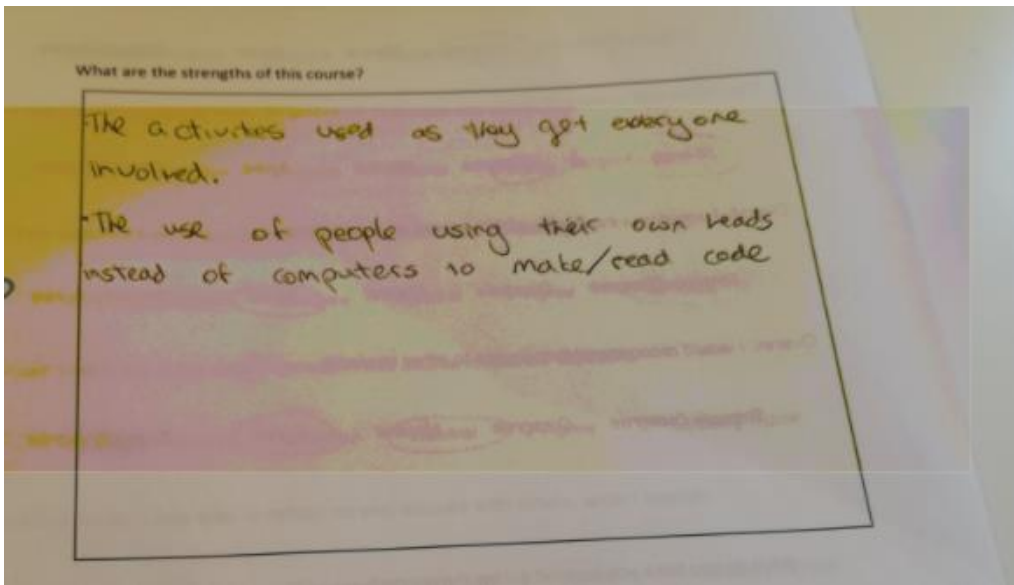 What are the strengths of this course?
-The activites used as they get everyone
involved.
-The use of people using their own heads
instead of computers to make/read code